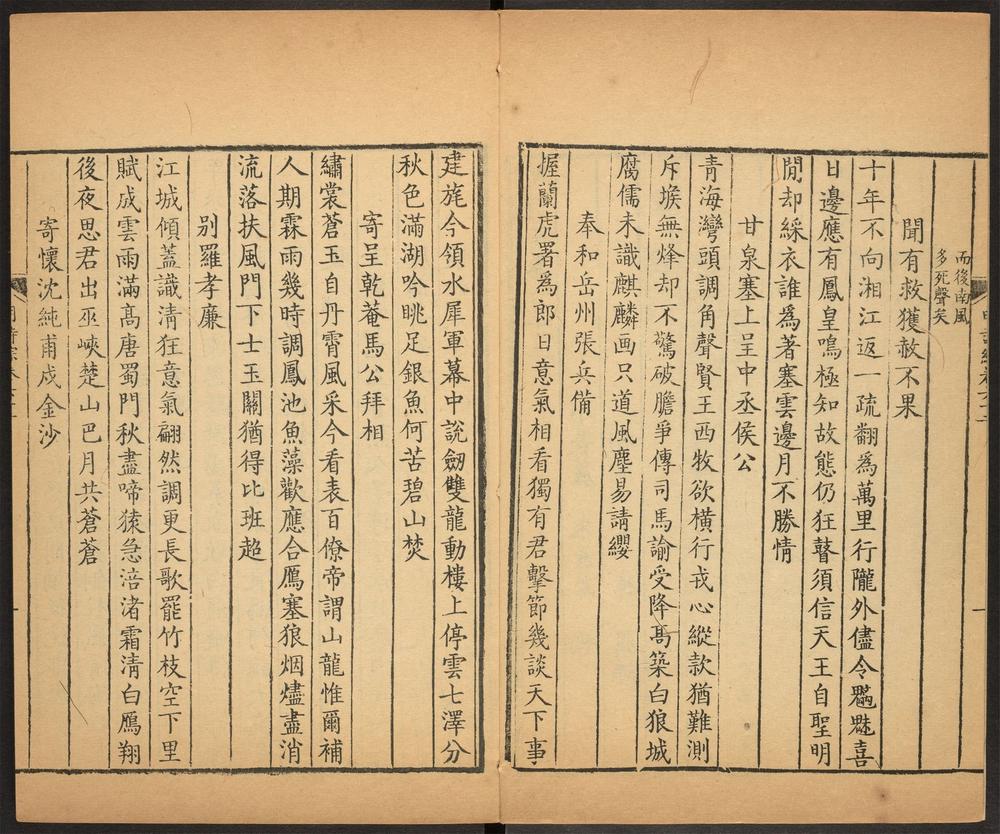 而後南風
多死聲矣
聞有救獲赦不果
十年不向湘江返一疏翻為萬里行隴外儘令魑魅喜
日邊應有鳳皇鳴極知故態仍狂瞽須信天王自聖明
閒却綵衣誰為著塞雲邊月不勝情
甘泉塞上呈中丞侯公
青海灣頭調角聲賢王西牧欲橫行戎心縱款猶難測
斥堠無烽却不驚破膽爭傳司馬諭受降髙築白狼城
腐儒未識麒麟画只道風塵易請纓
奉和岳州張兵備
握蘭虎署爲郎日意氣相看獨有君擊節幾談天下事
建旄今領水犀軍幕中說劒雙龍動樓上停雲七澤分
秋色滿湖吟眺足銀魚何苦碧山焚
寄呈乾菴馬公拜相
繡裳蒼玉自丹霄風采今看表百僚帝謂山龍惟爾補
人期霖雨幾時調鳳池魚藻歡應合鴈塞狼烟燼盡消
流落扶風門下士玉關猶得比班超
别羅孝廉
江城傾蓋識淸狂意氣翩然調更長歌罷竹枝空下里
賦成雲雨滿髙唐蜀門秋盡啼猿急涪渚霜淸白鴈翔
後夜思君出巫峽楚山巴月共蒼蒼
寄懷沈純甫戍金沙